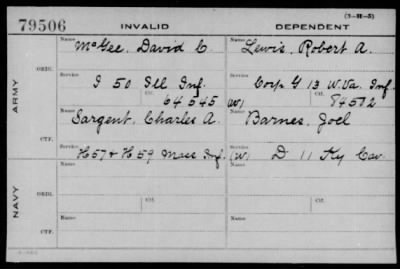 (3-H-5)
79506 INVALID DEPENDENT
Name Name
McGee, David C. Lewis, Robert A.
ORIG.
Service Service
I 50 Ill Inf. Corp G 13 W.Va. Inf.
ARMY
Ctf. Ctf.
64545 (W) 84512
Name Name
Sargent, Charles A. Barnes, Joel
CTF.
Service Service
H 57 & H 59 Mass Inf. (W) D 11 Ky Cav.
Name Name
ORIG.
NAVY
Ctf. Ctf.
Name Name
CTF.